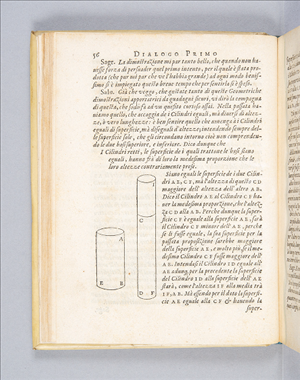 56 DIALOGO PRIMO
Sagr. La dimostrazione mi par tanto bella, che quando non ha-
uesse forza di persuader quel primo intento, per il quale è stata pro-
dotta (che pur mi par che ve l'habbia grande) ad ogni modo benis-
simo si è impiegato questo breue tempo che per sentirla s'è speso.
Salu. Già che veggo, che gustate tanto di queste Geometriche
dimostrazioni apportatrici di guadagni sicuri, vi dirò la compagna
di questa, che sodisfa ad vn quesito curioso assai. Nella passata ha-
uiamo quello, che accaggia de i Cilindri eguali, mà diuersi di altez-
ze, ò vero lunghezze: è ben sentire quello che auuenga à i Cilindri
eguali di superficie, mà diseguali d'altezze; intendendo sempre del-
le superficie sole, che gli circondano intorno cioè non comprenden-
do le due basi superiore, e inferiore. Dico dunque che
I Cilindri retti, le superficie de i quali trattone le basi siano
eguali, hanno frà di loro la medesima proporzione che le
loro altezze contrariamente prese.
Siano eguali le superficie de i due Cilin-
dri AE, CF, mà l'altezza di questo CD
maggiore dell'altezza dell'altro AB.
Dico il Cilindro AE al Cilindro CF ha-
uer la medesima proporzione, che l'altez-
za CD alla AB. Perche dunque la super-
ficie CF è eguale alla superficie AE, sarà
il Cilindro CF minore dell'AE, perche
se li fusse eguale, la sua superficie per la
passata proposizione sarebbe maggiore
della superficie AE, e molto più, se il me-
desimo Cilindro CF fusse maggiore dell'
AE. Intendasi il Cilindro ID eguale all'
AE adunq; per la precedente la superficie
del Cilindro ID alla superficie dell'AE
starà, come l'altezza IF alla media trà
IF, AB. Mà essendo per il dato la superfi-
cie AE eguale alla CF, & hauendo la
super-
A
E B
C
I
D F